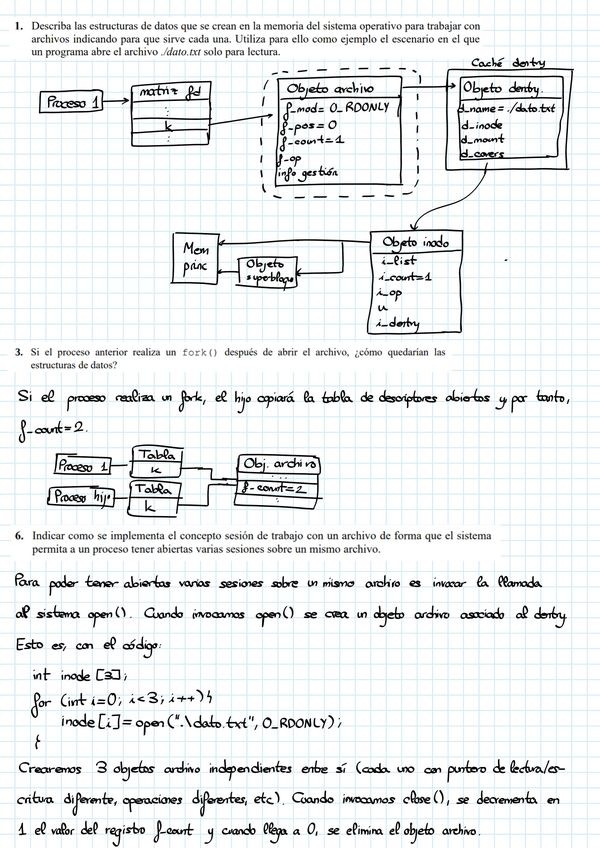 1. Describa las estructuras de datos que se crean en la memoria del sistema operativo para trabajar con
archivos indicando para que sirve cada una. Utiliza para ello como ejemplo el escenario en el que
un programa abre el archivo ./dato.txt solo para lectura.
Caché dentry
Proceso 1
matriz fd
:
k
:
Objeto archivo
f_mod= O_RDONLY
f-pos=0
f-count=1
f-op
info gestión
Objeto dentry.
d_name = ./dato.txt
d_inode
d_mount
d_covers
Mem
princ
Objeto
superbloque
Objeto inodo
i_list
i_count=1
i_op
u
i_dentry
3. Si el proceso anterior realiza un fork() después de abrir el archivo, ¿cómo quedarían las
estructuras de datos?
Si el proceso realiza un fork, el hijo copiará la tabla de descriptores abiertos y por tanto,
f_count=2.
Proceso 1
Tabla
k
Proceso hijo
Tabla
k
Obj. archivo
...
f-count=2
:
6. Indicar como se implementa el concepto sesión de trabajo con un archivo de forma que el sistema
permita a un proceso tener abiertas varias sesiones sobre un mismo archivo.
Para poder tener abiertas varias sesiones sobre un mismo archivo es invocar la llamada
al sistema open(). Cuando invocamos open() se crea un objeto archivo asociado al dentry
Esto es, con el código:
int inode [3];
for (int i=0; i<3; i++){
inode[i]=open(".\dato.txt", O_RDONLY);
}
Crearemos 3 objetos archivo independientes entre sí (cada uno con puntero de lectura/es-
critura diferente, operaciones diferentes, etc). Cuando invocamos close(), se decrementa en
1 el valor del registro f_count y cuando llega a 0, se elimina el objeto archivo.